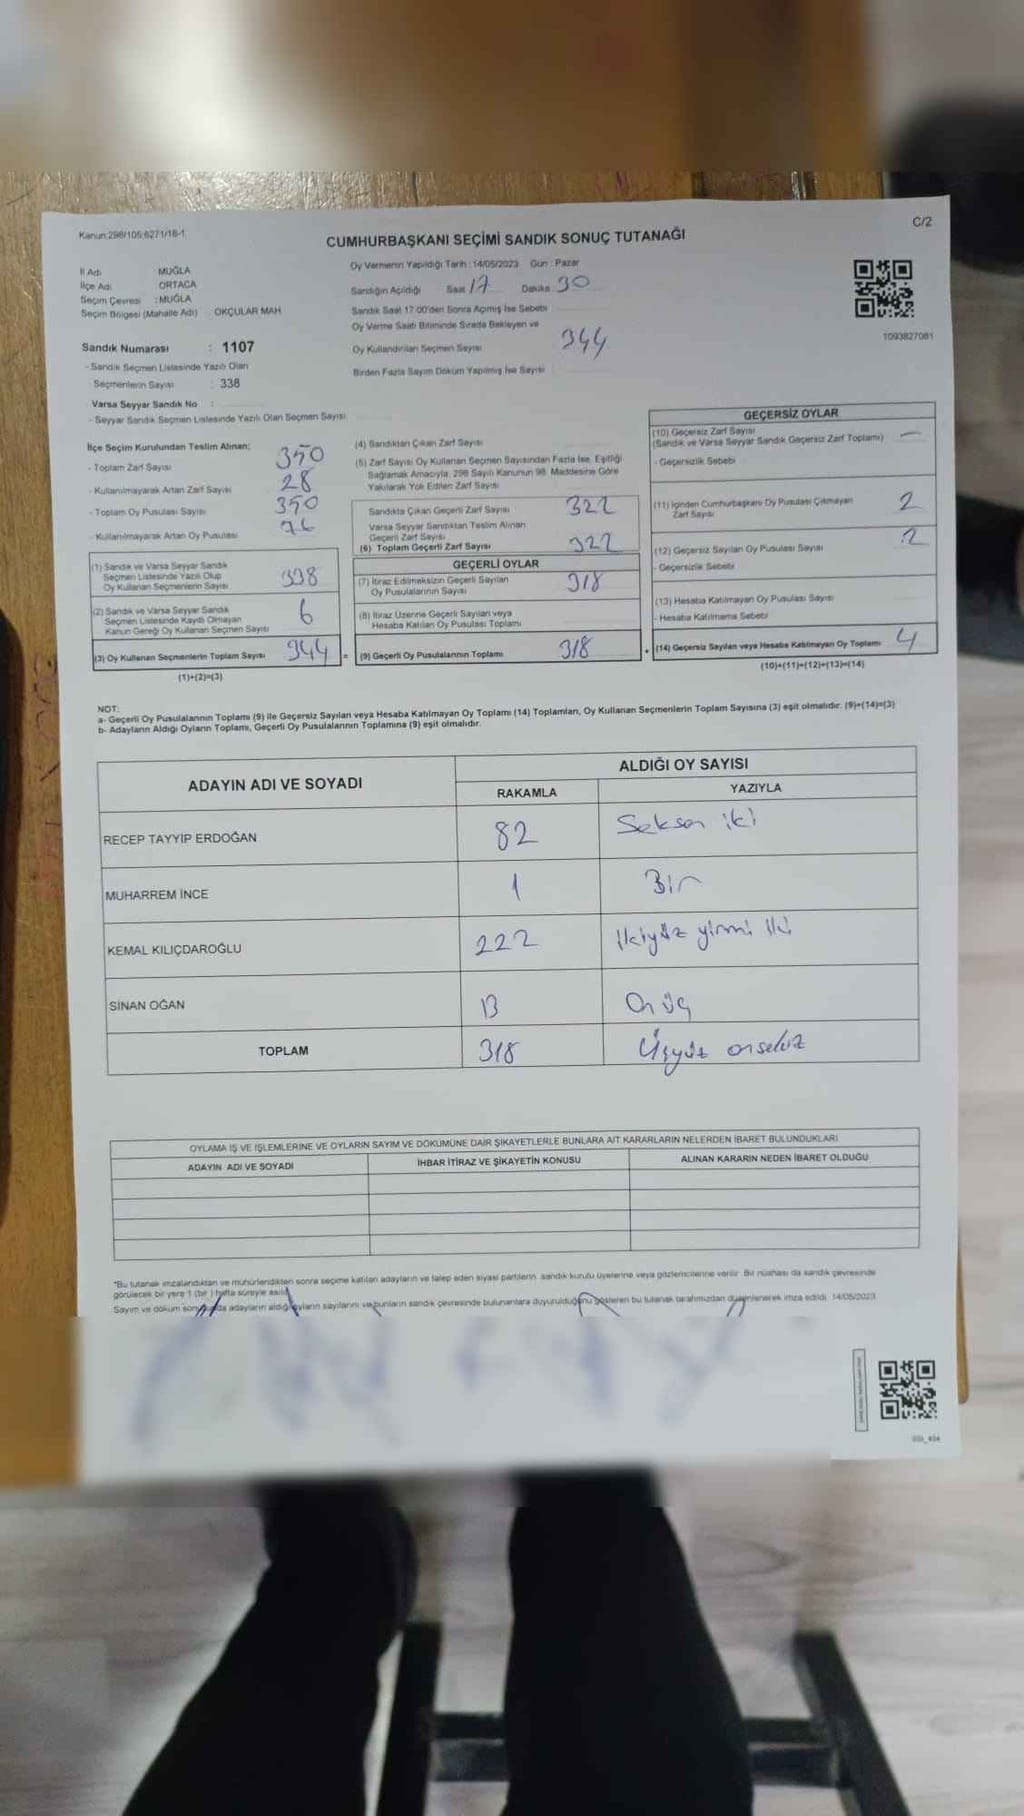 Kanun:298/105;6271/18-1
C/2
CUMHURBAŞKANI SEÇİMİ SANDIK SONUÇ TUTANAĞI
İl Adı MUĞLA
İlçe Adı ORTACA
Seçim Çevresi : MUĞLA
Seçim Bölgesi (Mahalle Adı) OKÇULAR MAH
Oy Vermenin Yapıldığı Tarih : 14/05/2023 Gün : Pazar
Sandığın Açıldığı Saat 17 Dakika 30
Sandık Saat 17:00'den Sonra Açılmış İse Sebebi
Oy Verme Saati Bitiminde Sırada Bekleyen ve
Oy Kullandırılan Seçmen Sayısı 344
Birden Fazla Sayım Döküm Yapılmış İse Sayısı
1093827081
Sandık Numarası : 1107
- Sandık Seçmen Listesinde Yazılı Olan
Seçmenlerin Sayısı : 338
Varsa Seyyar Sandık No :
- Seyyar Sandık Seçmen Listesinde Yazılı Olan Seçmen Sayısı
İlçe Seçim Kurulundan Teslim Alınan:
- Toplam Zarf Sayısı 350
- Kullanılmayarak Artan Zarf Sayısı 28
- Toplam Oy Pusulası Sayısı 350
- Kullanılmayarak Artan Oy Pusulası
(1) Sandık ve Varsa Seyyar Sandık
Seçmen Listesinde Yazılı Olup
Oy Kullanan Seçmenlerin Sayısı 338
(2) Sandık ve Varsa Seyyar Sandık
Seçmen Listesinde Kayıtlı Olmayan
Kanun Gereği Oy Kullanan Seçmen Sayısı 6
(3) Oy Kullanan Seçmenlerin Toplam Sayısı 344 =
(1)+(2)=(3)
(4) Sandıktan Çıkan Zarf Sayısı
(5) Zarf Sayısı Oy Kullanan Seçmen Sayısından Fazla İse, Eşitliği
Sağlamak Amacıyla, 298 Sayılı Kanunun 98. Maddesine Göre
Yakılarak Yok Edilen Zarf Sayısı
Sandıkta Çıkan Geçerli Zarf Sayısı 322
Varsa Seyyar Sandıktan Teslim Alınan
Geçerli Zarf Sayısı
(6) Toplam Geçerli Zarf Sayısı 322
GEÇERLİ OYLAR
(7) İtiraz Edilmeksizin Geçerli Sayılan
Oy Pusulalarının Sayısı 318
(8) İtiraz Üzerine Geçerli Sayılan veya
Hesaba Katılan Oy Pusulası Toplamı
(9) Geçerli Oy Pusulalarının Toplamı 318 +
GEÇERSİZ OYLAR
(10) Geçersiz Zarf Sayısı
(Sandık ve Varsa Seyyar Sandık Geçersiz Zarf Toplamı) —
- Geçersizlik Sebebi
(11) İçinden Cumhurbaşkanı Oy Pusulası Çıkmayan
Zarf Sayısı 2
(12) Geçersiz Sayılan Oy Pusulası Sayısı 2
- Geçersizlik Sebebi
(13) Hesaba Katılmayan Oy Pusulası Sayısı
- Hesaba Katılmama Sebebi
(14) Geçersiz Sayılan veya Hesaba Katılmayan Oy Toplamı 4
(10)+(11)+(12)+(13)=(14)
NOT:
a- Geçerli Oy Pusulalarının Toplamı (9) ile Geçersiz Sayılan veya Hesaba Katılmayan Oy Toplamı (14) Toplamları, Oy Kullanan Seçmenlerin Toplam Sayısına (3) eşit olmalıdır. (9)+(14)=(3)
b- Adayların Aldığı Oyların Toplamı, Geçerli Oy Pusulalarının Toplamına (9) eşit olmalıdır.
ADAYIN ADI VE SOYADI ALDIĞI OY SAYISI
RAKAMLA YAZIYLA
RECEP TAYYİP ERDOĞAN 82 Seksen iki
MUHARREM İNCE 1 Bir
KEMAL KILIÇDAROĞLU 222 İkiyüz yirmi iki
SİNAN OĞAN 13 On üç
TOPLAM 318 Üçyüz onsekiz
OYLAMA İŞ VE İŞLEMLERİNE VE OYLARIN SAYIM VE DÖKÜMÜNE DAİR ŞİKAYETLERLE BUNLARA AİT KARARLARIN NELERDEN İBARET BULUNDUKLARI
ADAYIN ADI VE SOYADI İHBAR İTİRAZ VE ŞİKAYETİN KONUSU ALINAN KARARIN NEDEN İBARET OLDUĞU
*Bu tutanak imzalandıktan ve mühürlendikten sonra seçime katılan adayların ve talep eden siyasi partilerin sandık kurulu üyelerine veya gözlemcilerine verilir. Bir nüshası da sandık çevresinde
görülecek bir yere 1 (bir) hafta süreyle asılır.
Sayım ve döküm adayların aldığı oyların sayılarını ve bunların sandık çevresinde bulunanlara duyurulduğunu gösteren bu tutanak tarafımızdan düzenlenerek imza edildi. 14/05/2023